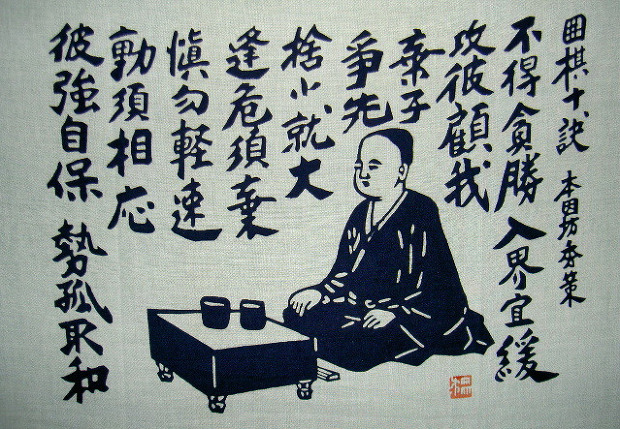 囲棋十訣 本因坊秀策
不得貪勝 入界宜緩
攻彼顧我
棄子
爭先
捨小就大
逢危須棄
慎勿軽速
動須相応
彼強自保 勢孤取和